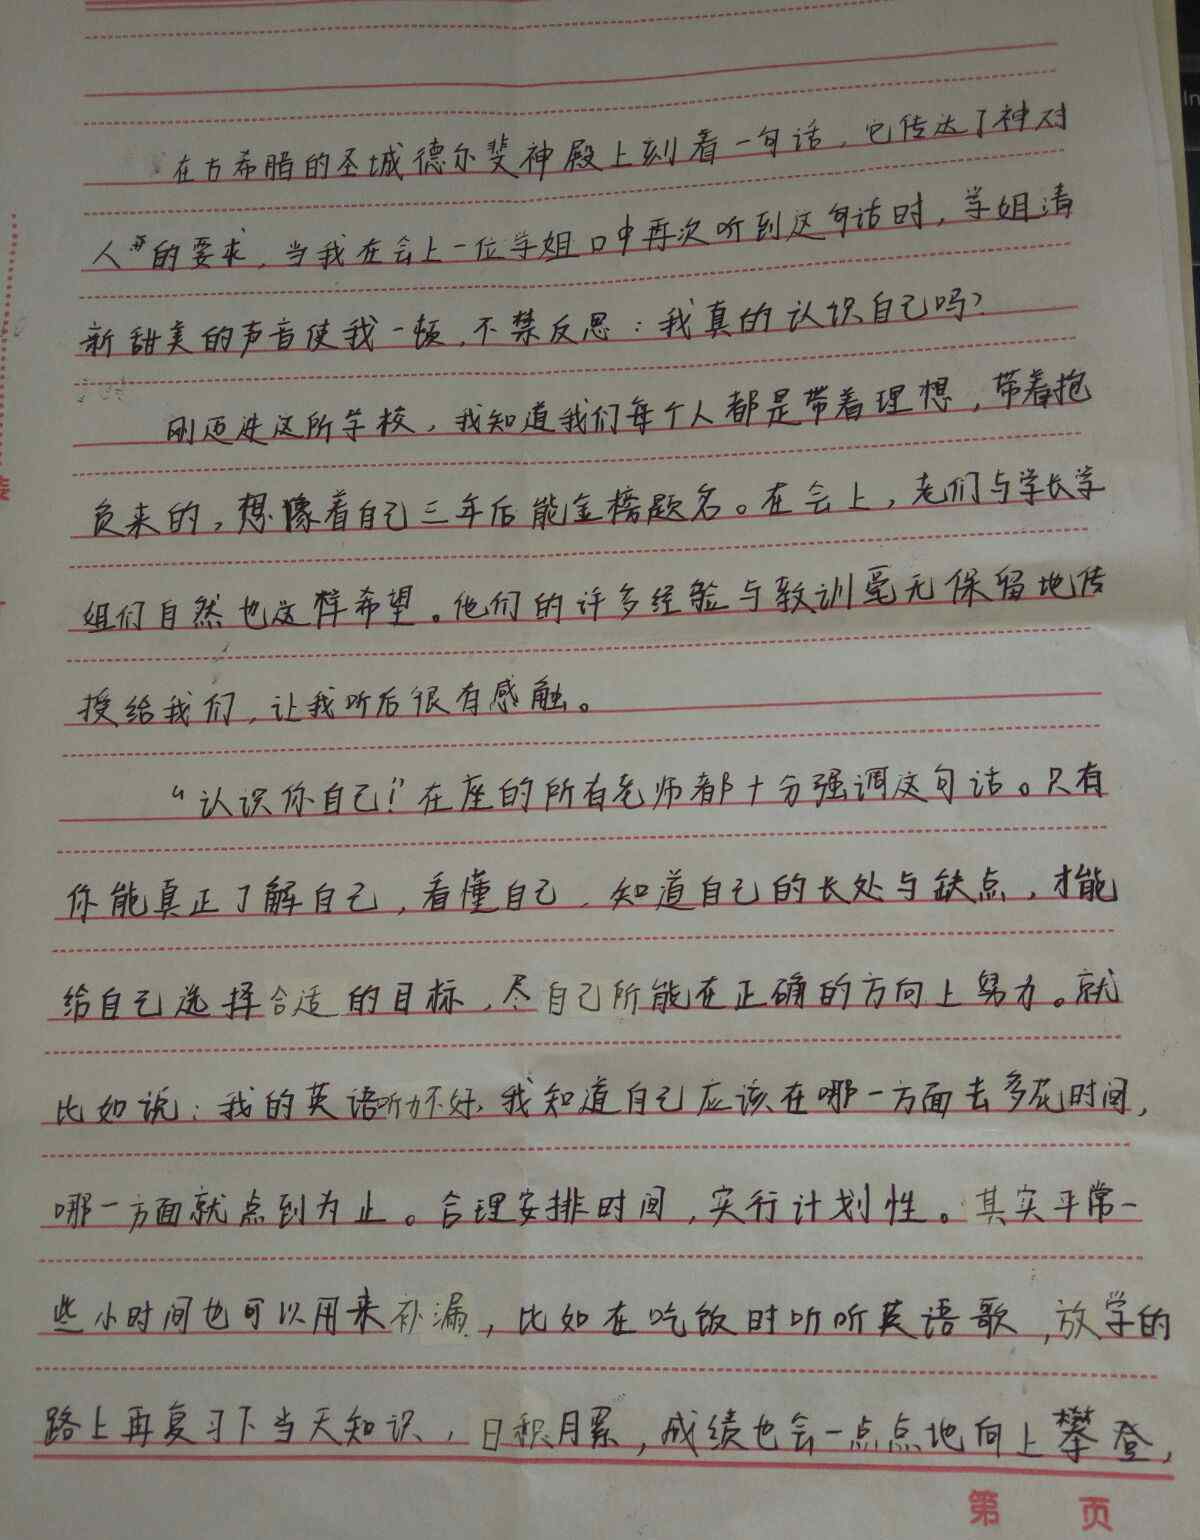 在古希腊的圣城德尔斐神殿上刻着一句话，它传达了神对
人的要求，当我在会上一位学姐口中再次听到这句话时，学姐清
新甜美的声音使我一顿，不禁反思：我真的认识自己吗？
刚迈进这所学校，我知道我们每个人都是带着理想，带着抱
负来的，想像着自己三年后能金榜题名。在会上，老们与学长学
姐们自然也这样希望。他们的许多经验与教训毫无保留地传
授给我们，让我听后很有感触。
“认识你自己！”在座的所有老师都十分强调这句话。只有
你能真正了解自己，看懂自己，知道自己的长处与缺点，才能
给自己选择合适的目标，尽自己所能在正确的方向上努力。就
比如说：我的英语听力不好，我知道自己应该在哪一方面去多花时间，
哪一方面就点到为止。合理安排时间，实行计划性。其实平常一
些小时间也可以用来补漏，比如在吃饭时听听英语歌，放学的
路上再复习下当天知识，日积月累，成绩也会一点点地向上攀登，
第 页